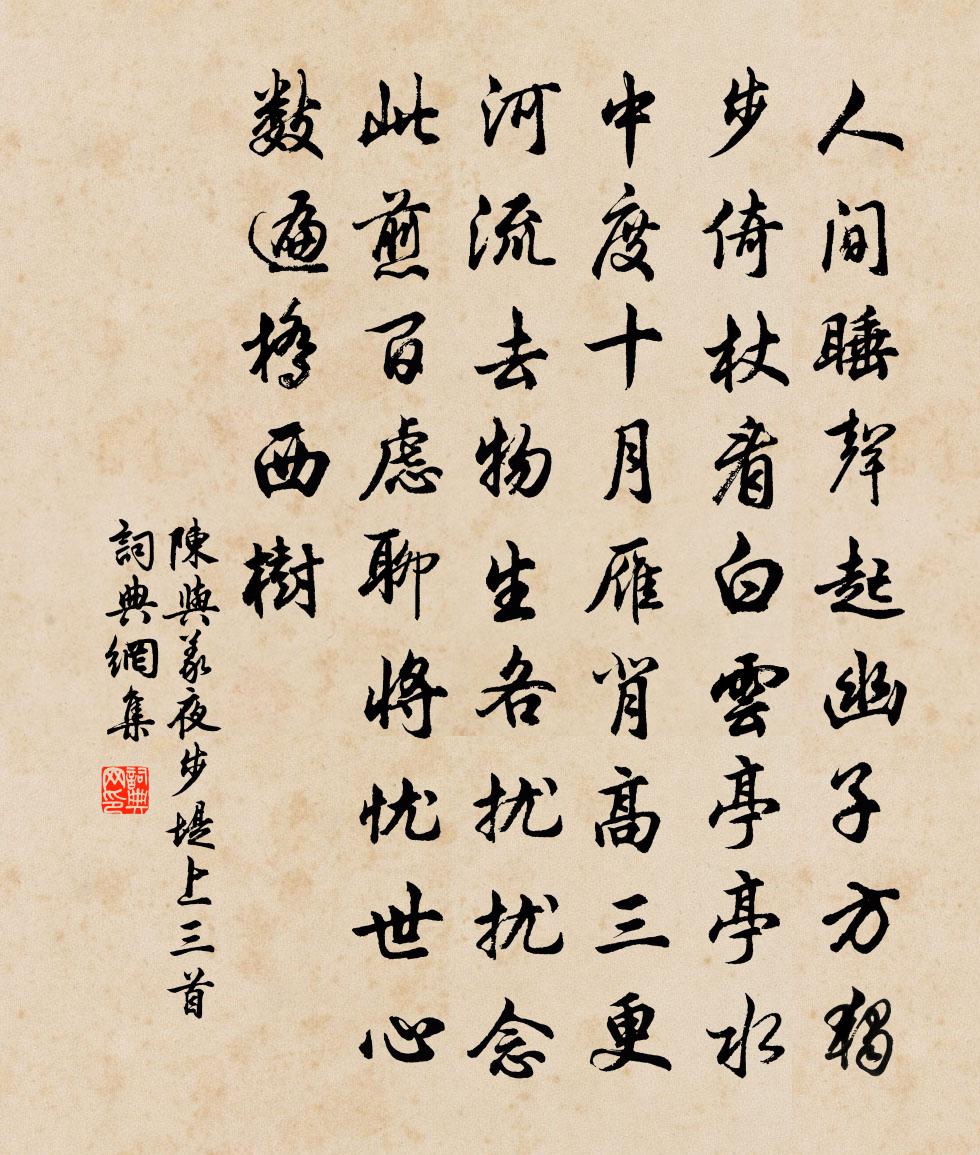 人間睡聲起幽子方獨
步倚杖看白雲亭亭水
中度十月雁背高三更
河流去物生各扰扰念
此煎百慮聊将忧世心
数遍橋西樹
陳與義夜步堤上三首
詞典網集
詞典网印